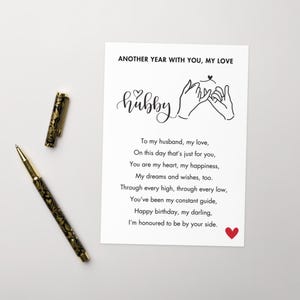 ANOTHER YEAR WITH YOU, MY LOVE
hubby
To my husband, my love,
On this day that's just for you,
You are my heart, my happiness,
My dreams and wishes, too.
Through every high, through every low,
You've been my constant guide,
Happy birthday, my darling,
I'm honoured to be by your side.